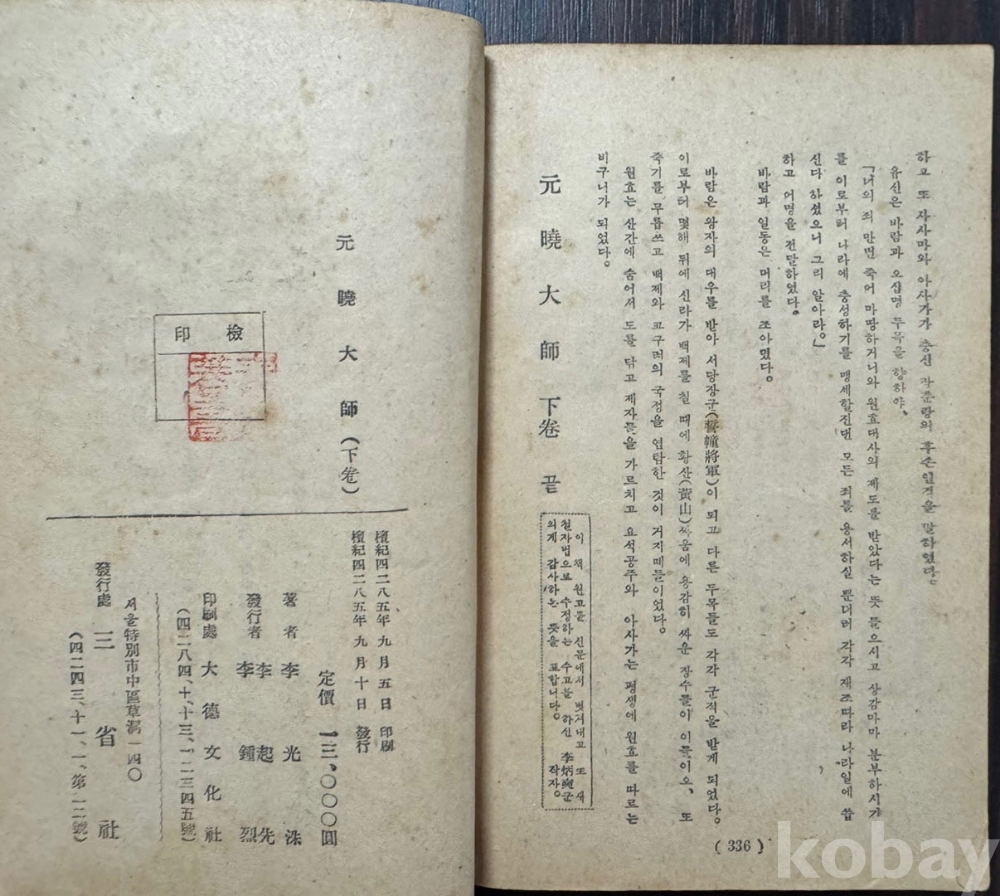 하고 또 사사마와 아사가가 충신 작준랑의 후손인것을 말하였다.
유신은 바람과 오십명 두목을 향하야,
「너의 죄 만번 죽어 마땅하거니와 원효대사의 제도를 받았다는 뜻을 들으시고 상감마마 분부하시기
를 이로부터 나라에 충성하기를 맹세할진댄 모든 죄를 용서하실 뿐더러 각각 재조따라 나라일에 쓰
신다 하셨으니 그리 알아라.」
하고 어명을 전달하였다.
바람과 일동은 머리를 조아렸다.
바람은 왕자의 대우를 받아 서당장군(誓幢將軍)이 되고 다른 두목들도 각각 군직을 받게 되었다.
이로부터 몇해 뒤에 신라가 백제를 칠 때에 황산(黃山)싸움에 용감히 싸운 장수들이 이들이오, 또
죽기를 무릅쓰고 백제와 고구려의 국정을 염탐한 것이 거지떼들이었다.
원효는 산간에 숨어서 도를 닦고 제자들을 가르치고 요석공주와 아사가는 평생에 원효를 따르는
비구니가 되었다.
元曉大師 下卷 끝
이 책 원고를 신문에서 벗겨내고 또 새
철자법으로 수정하는 수고를 하신 李炳 君
의게 감사하는 뜻을 표합니다. 작자.
(336)
元曉大師(下卷)
檢印
檀紀四二八五年九月五日 印刷
檀紀四二八五年九月十日 發行
定價 一三,〇〇〇圓
著者 李光洙
李起先
發行者 李鍾烈
印刷處 大德文化社
(四二八四、十、十三、一二三四五號)
서울特別市中區草洞一四〇
發行處 三省社
(四二四三、十一、一、第一二號)
kobay